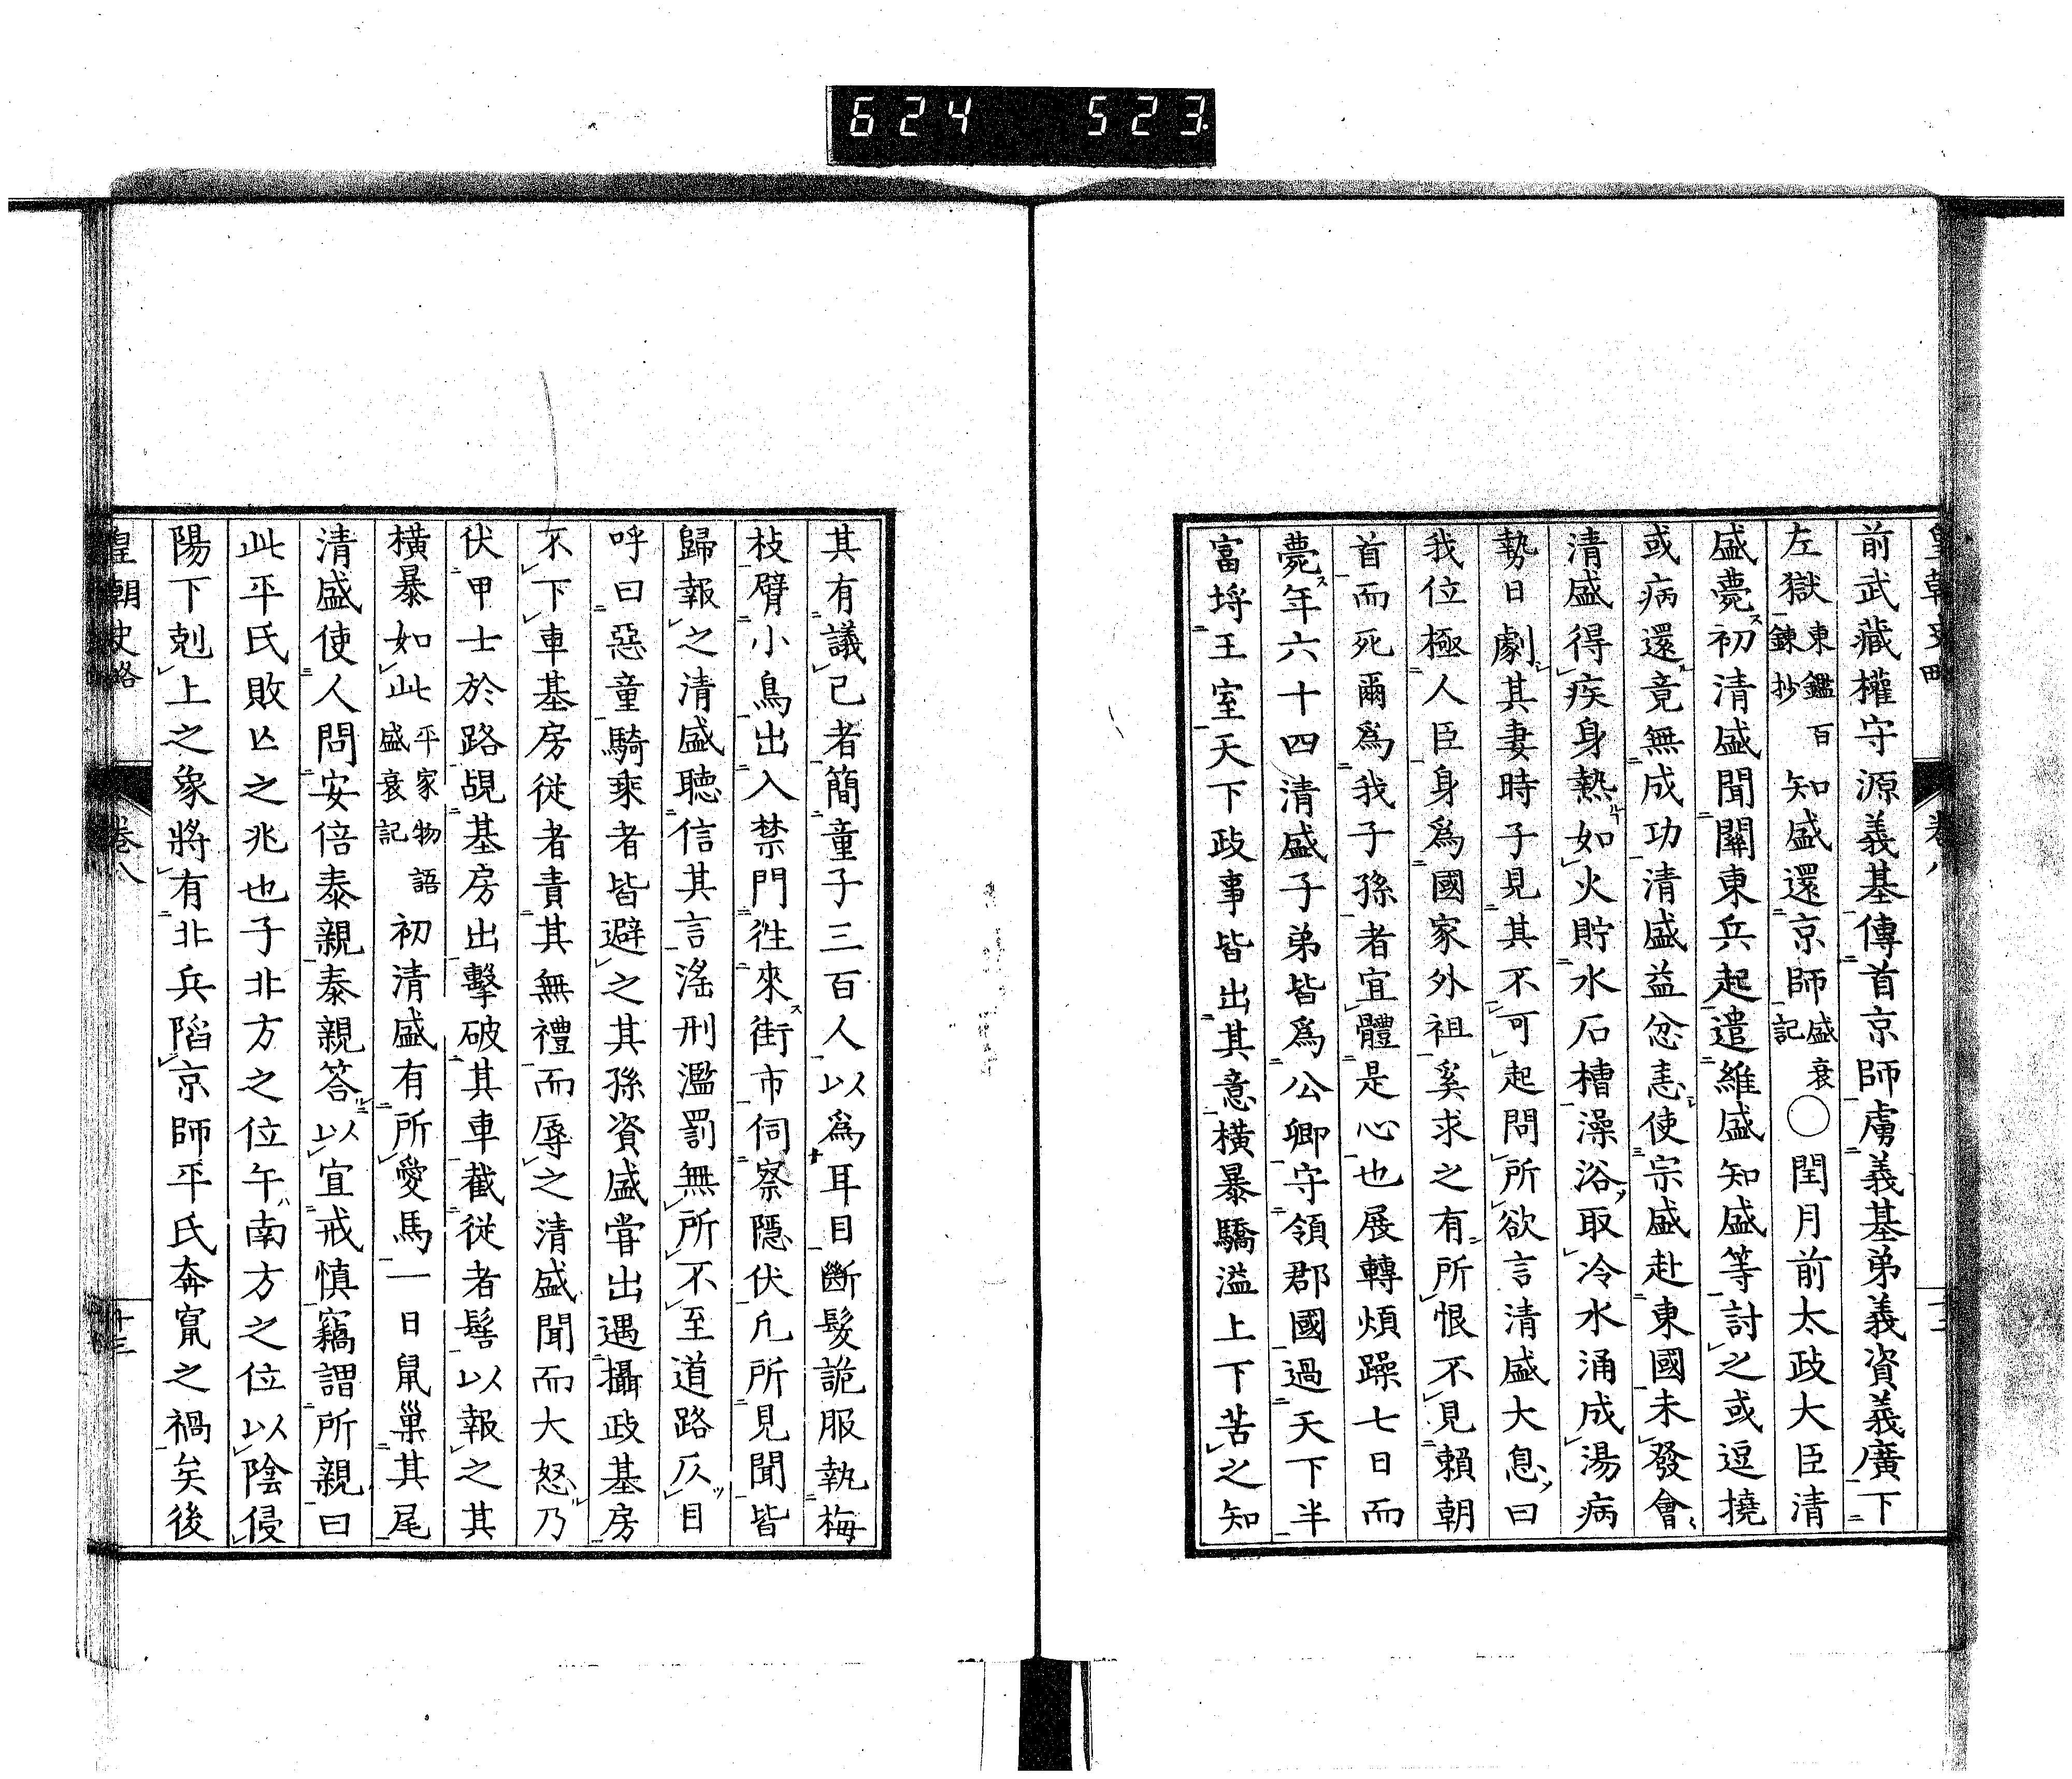 624 523.
皇朝史略 卷八
前武藏權守源義基傳首京師虜義基弟義資義廣下
左獄東鑑百鍊抄知盛還京師盛衰記〇閏月前太政大臣清
盛薨初清盛聞關東兵起遣維盛知盛等討之或逗撓
或病還竟無成功清盛益忿恚使宗盛赴東國未發會
清盛得疾身熱如火貯水石槽澡浴取冷水涌成湯病
勢日劇其妻時子見其不可起問所欲言清盛大息曰
我位極人臣身爲國家外祖奚求之有所恨不見賴朝
首而死爾爲我子孫者宜體是心也展轉煩躁七日而
薨年六十四清盛子弟皆爲公卿守領郡國過天下半
富埒王室天下政事皆出其意橫暴驕溢上下苦之知
其有議己者簡童子三百人以爲耳目斷髮詭服執梅
枝臂小鳥出入禁門往來街市伺察隱伏凡所見聞皆
歸報之清盛聽信其言滛刑濫罰無所不至道路仄目
呼曰惡童騎乘者皆避之其孫資盛嘗出遇攝政基房
不下車基房從者責其無禮而辱之清盛聞而大怒乃
伏甲士於路覘基房出擊破其車截從者髻以報之其
橫暴如此平家物語盛衰記初清盛有所愛馬一日鼠巢其尾
清盛使人問安倍泰親泰親答以宜戒慎竊謂所親曰
此平氏敗亾之兆也子北方之位午南方之位以陰侵
陽下剋上之象將有北兵陷京師平氏奔竄之禍矣後
皇朝史略 卷八 十三